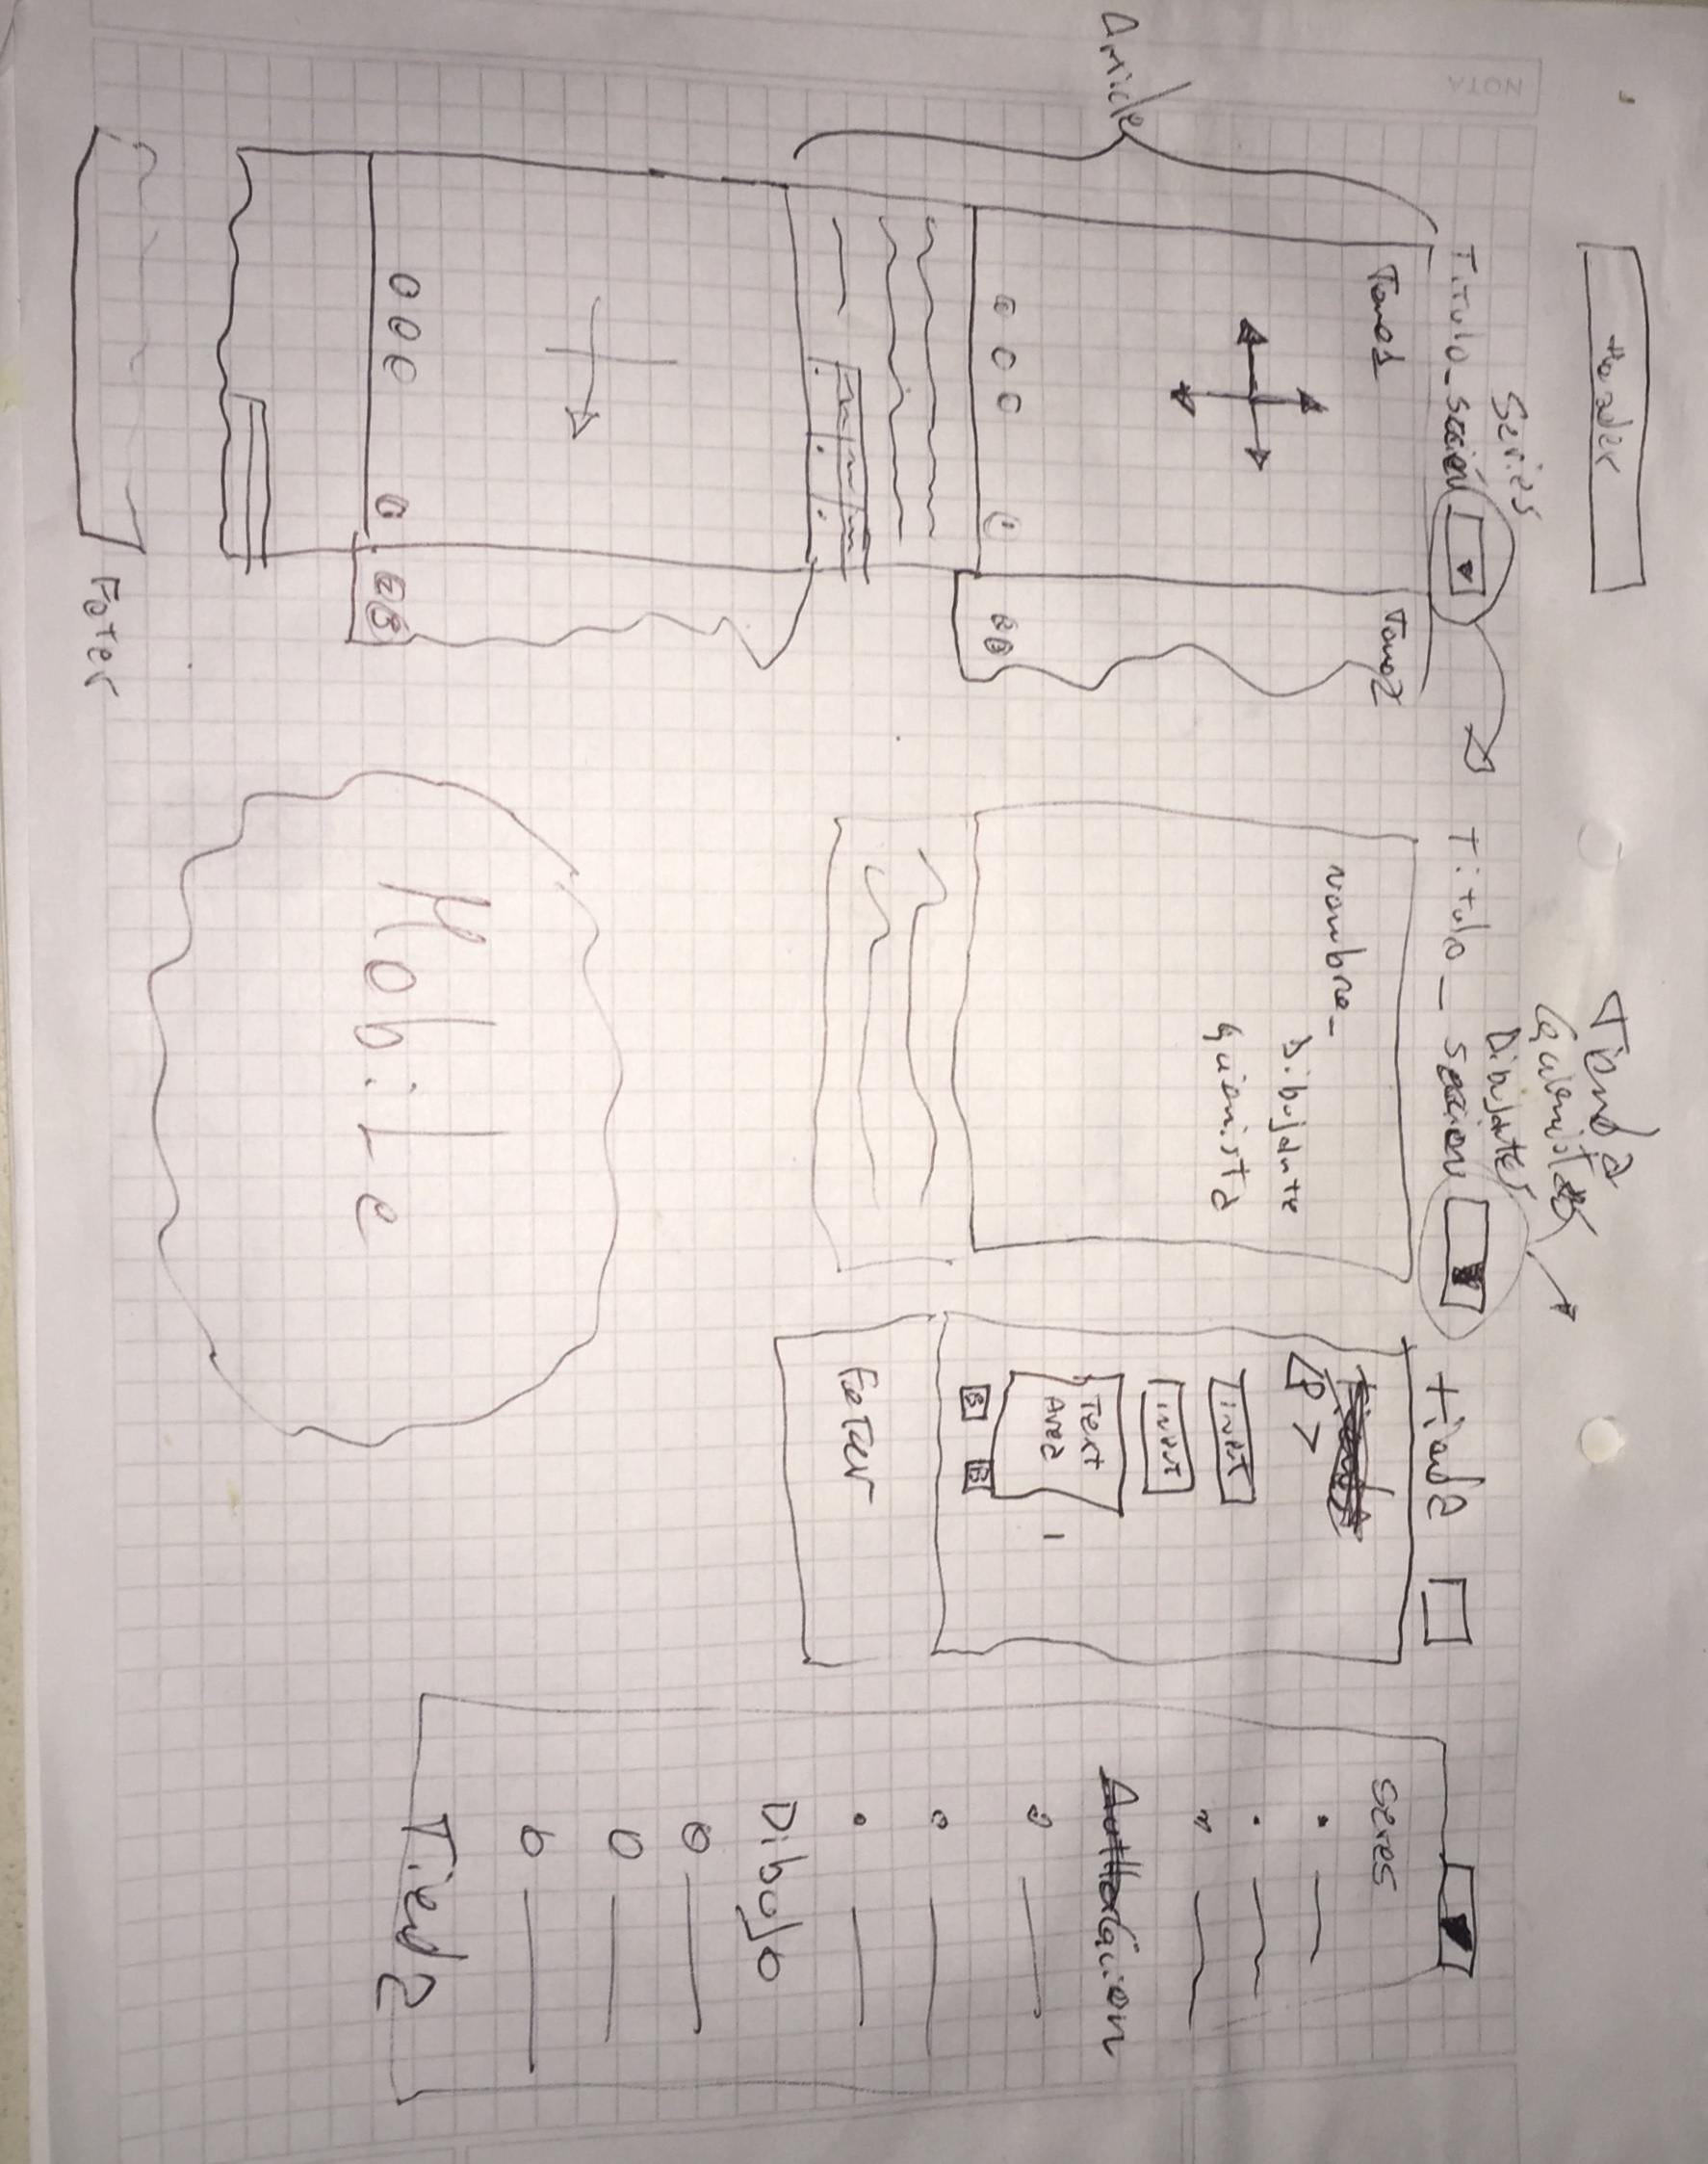 NOTA
Header
Series
Titulo_sección
Tomo1
Tomo2
Article
Footer
Tienda
Guionistas
Dibujantes
Titulo_seccion
nombre_
Dibujante
guionista
tienda
<P>
INPUT
INPUT
TEXT
Area
B B
Footer
Mobile
Series
Guion
Dibujo
Tienda